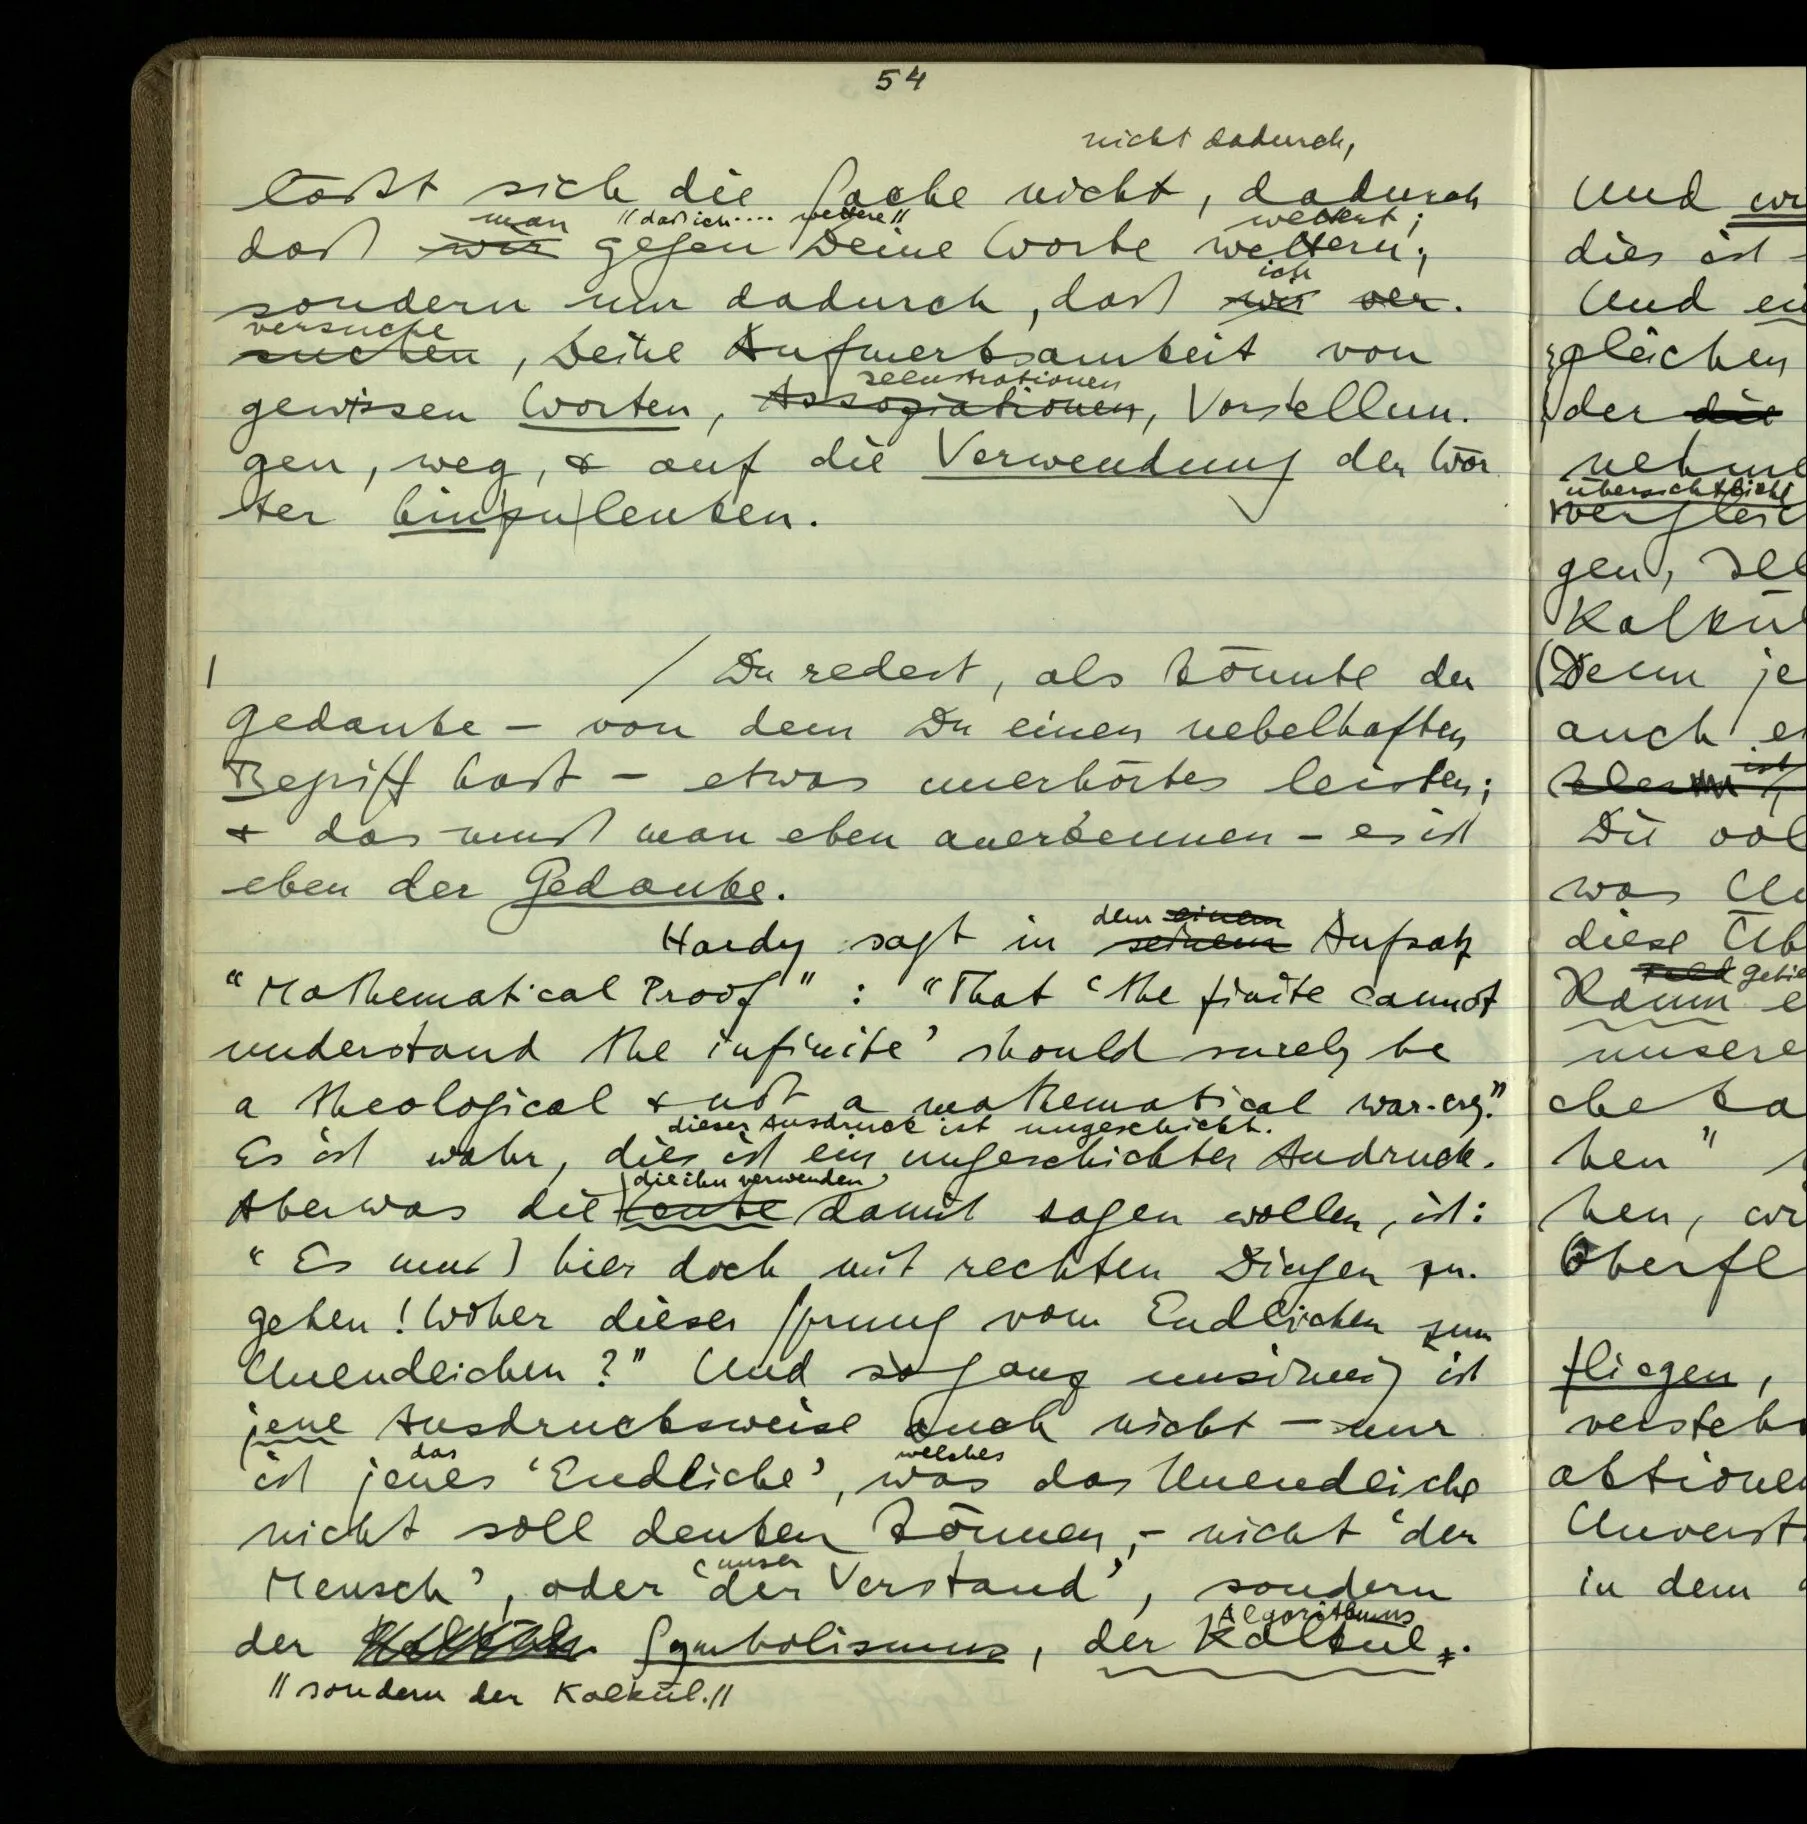 54
nicht dadurch,
läßt sich die Sache nicht, dadurch
man //daß ich.... wettere// wettert;
daß wir gegen Deine Worte wettern;
ich
sondern nur dadurch, daß wir ver-
versuche
suchen, Deine Aufmerksamkeit von
Illustrationen
gewissen Worten, Assoziationen, Vorstellun-
gen, weg, & auf die Verwendung der Wör
ter hinzulenken.
/ Du redest, als könnte der
Gedanke – von dem Du einen nebelhaften
Begriff hast – etwas unerhörtes leisten;
& das muß man eben anerkennen – es ist
eben der Gedanke.
dem einem
Hardy sagt in seinem Aufsatz
"Mathematical Proof": "That 'the finite cannot
understand the infinite' should surely be
a theological & not a mathematical war-cry."
dieser Ausdruck ist ungeschickt.
Es ist wahr, dies ist ein ungeschickter Audruck.
die ihn verwenden,
Aber was die Leute damit sagen wollen, ist:
"Es muß hier doch mit rechten Dingen zu-
gehen! Woher dieser Sprung vom Endlichen zum
Unendlichen?" Und so ganz unsinnig ist
jene Ausdrucksweise auch nicht – nur
das welches
ist jenes 'Endliche', was das Unendliche
nicht soll denken können, – nicht 'der
unser
Mensch', oder 'der Verstand', sondern
Algorithmus
der Symbolismus, der Kalkül.
//sondern der Kalkül.//
Und
dies ist
Und
gleichen
der die
übersichtliche
gen,
Kalkül
(Denn je
auch
ist
Die
was
diese
Feld
Kann
unsere
che
hen"
hen,
Oberfl
fliegen,
versteh
aktionen
Unverst
in dem